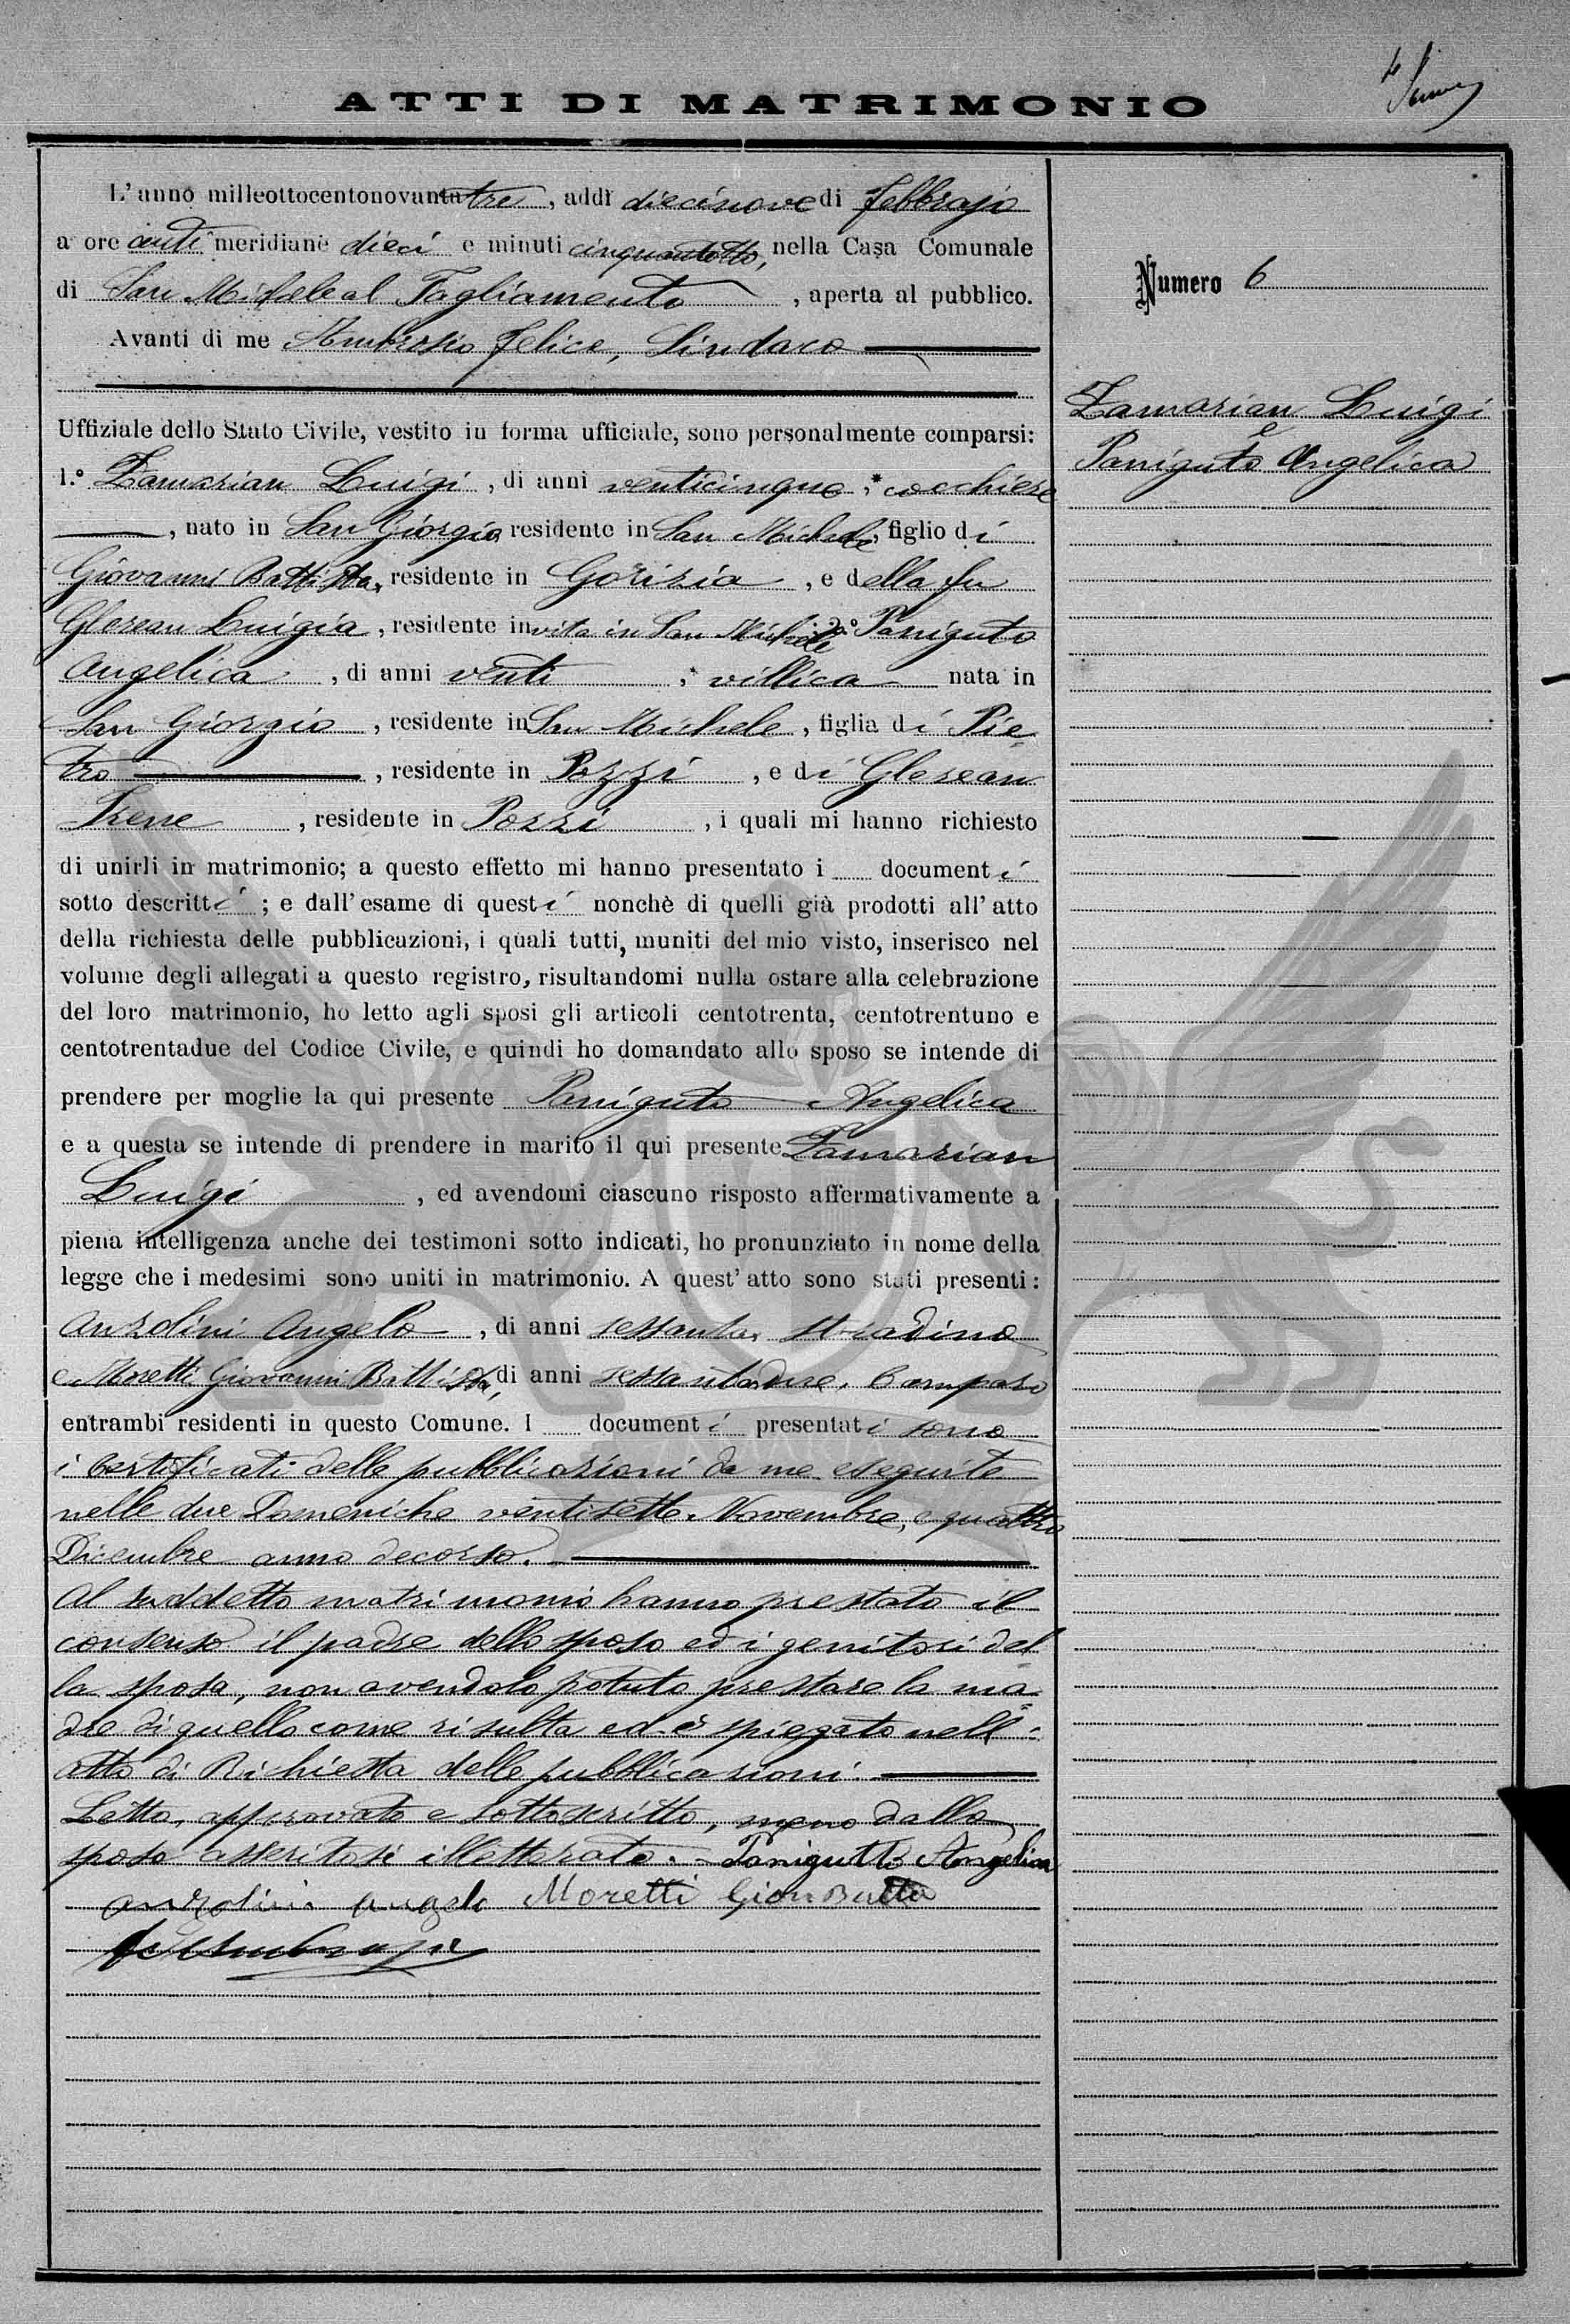 ATTI DI MATRIMONIO
L'anno milleottocentonovantatre, addì diecinove di febbrajo
a ore anti meridiane dieci e minuti cinquantotto, nella Casa Comunale
di San Michele al Tagliamento, aperta al pubblico.
Avanti di me Ambrosio Felice, Sindaco
Uffiziale dello Stato Civile, vestito in forma ufficiale, sono personalmente comparsi:
1.° Zamarian Luigi, di anni venticinque, cocchiere
, nato in San Giorgio, residente in San Michele, figlio di
Giovanni Battista, residente in Gorizia, e della fu
Glerean Luigia, residente in vita in San Michele; 2.° Paniguto
Angelica, di anni venti, villica nata in
San Giorgio, residente in San Michele, figlia di Pie-
tro, residente in Pozzi, e di Glerean
Irene, residente in Pozzi, i quali mi hanno richiesto
di unirli in matrimonio; a questo effetto mi hanno presentato i documenti
sotto descritti; e dall'esame di questi nonchè di quelli già prodotti all'atto
della richiesta delle pubblicazioni, i quali tutti, muniti del mio visto, inserisco nel
volume degli allegati a questo registro, risultandomi nulla ostare alla celebrazione
del loro matrimonio, ho letto agli sposi gli articoli centotrenta, centotrentuno e
centotrentadue del Codice Civile, e quindi ho domandato allo sposo se intende di
prendere per moglie la qui presente Paniguto Angelica
e a questa se intende di prendere in marito il qui presente Zamarian
Luigi, ed avendomi ciascuno risposto affermativamente a
piena intelligenza anche dei testimoni sotto indicati, ho pronunziato in nome della
legge che i medesimi sono uniti in matrimonio. A quest'atto sono stati presenti:
Anzolini Angelo, di anni sessanta, stradino
e Moretti Giovanni Battista, di anni sessantadue,
entrambi residenti in questo Comune. I documenti presentati sono
i certificati delle pubblicazioni da me eseguite
nelle due Domeniche ventisette Novembre, e quattro
Dicembre anno decorso.
Al suddetto matrimonio hanno prestato il
consenso il padre dello sposo ed i genitori del
la sposa, non avendolo potuto prestare la ma-
dre di quello come risulta ed è spiegato nell'
atto di Richiesta delle pubblicazioni.
Letto, approvato e sottoscritto, meno dallo
sposo asseritosi illetterato. Panigutto Angelica
Anzolini Angelo Moretti Gion Batta
Numero 6
Zamarian Luigi
e
Paniguto Angelica